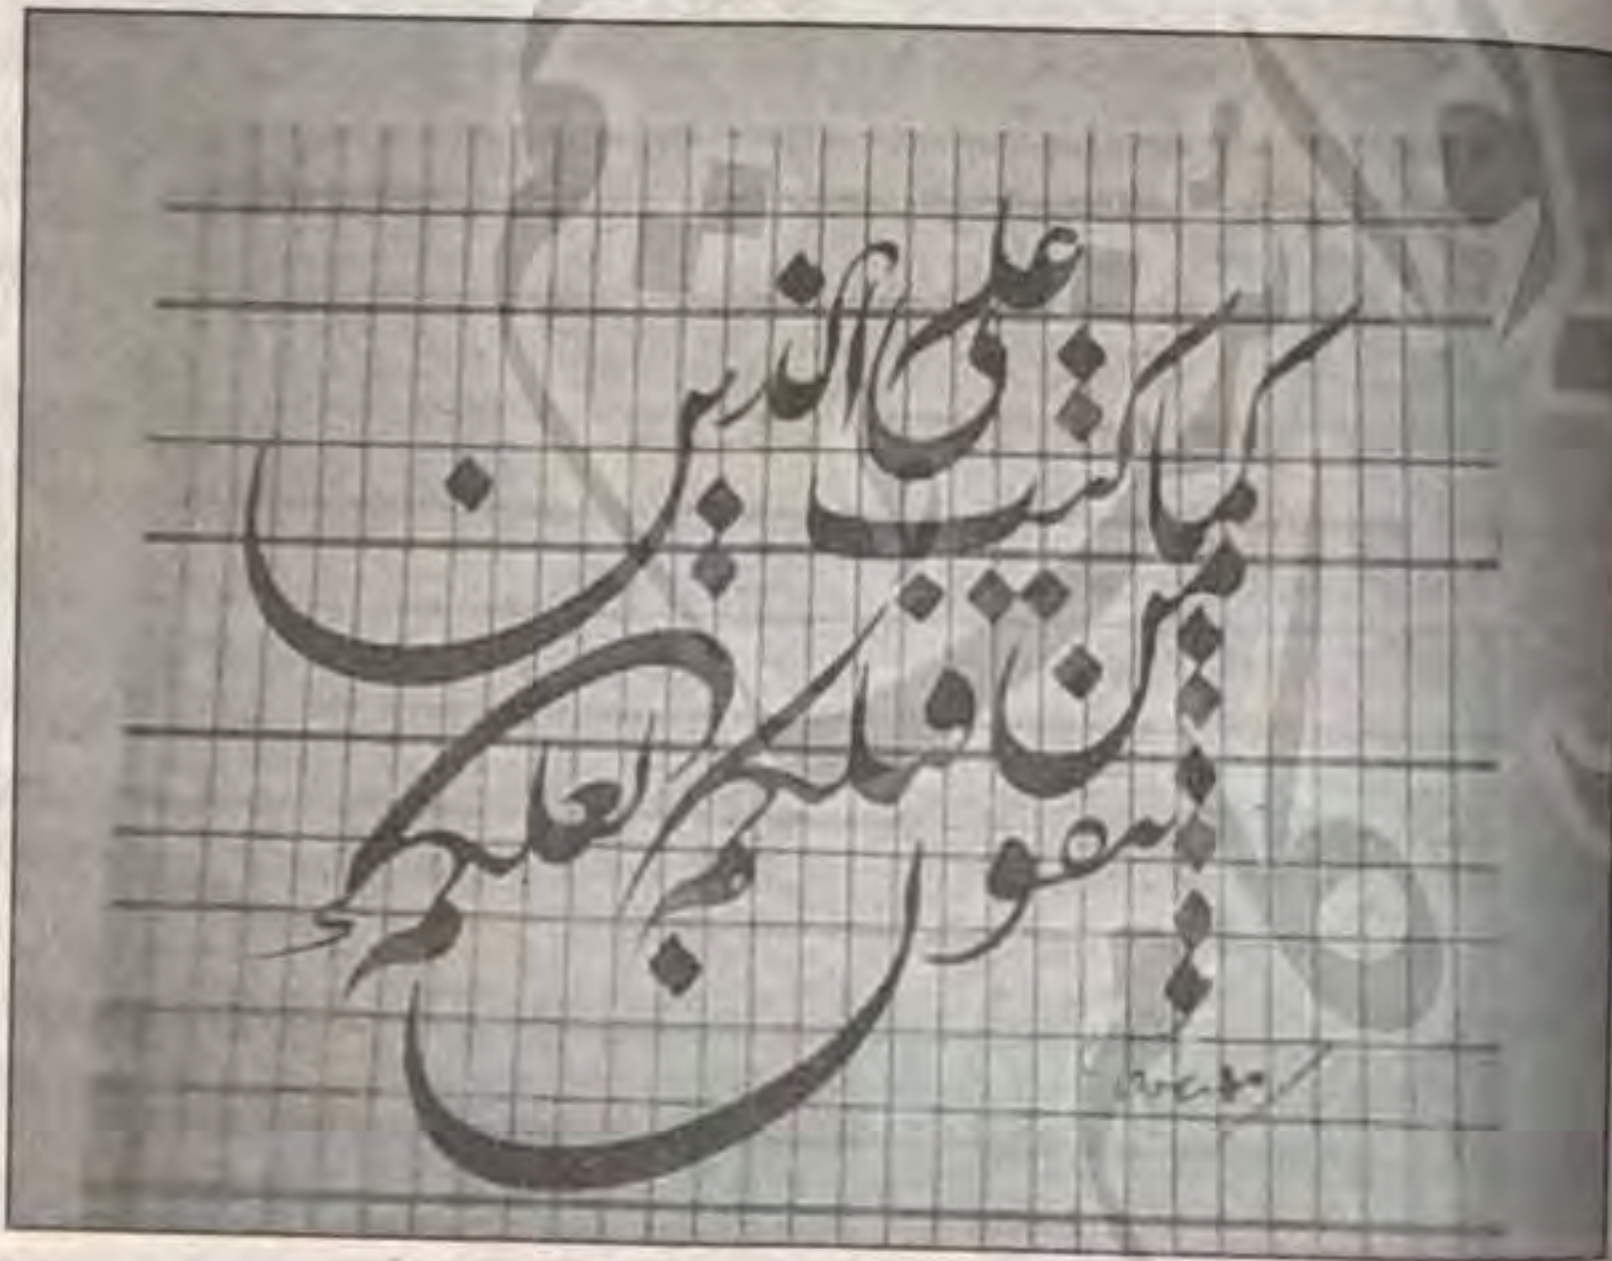 كما كتب على الذين
من قبلكم لعلكم
تتقون